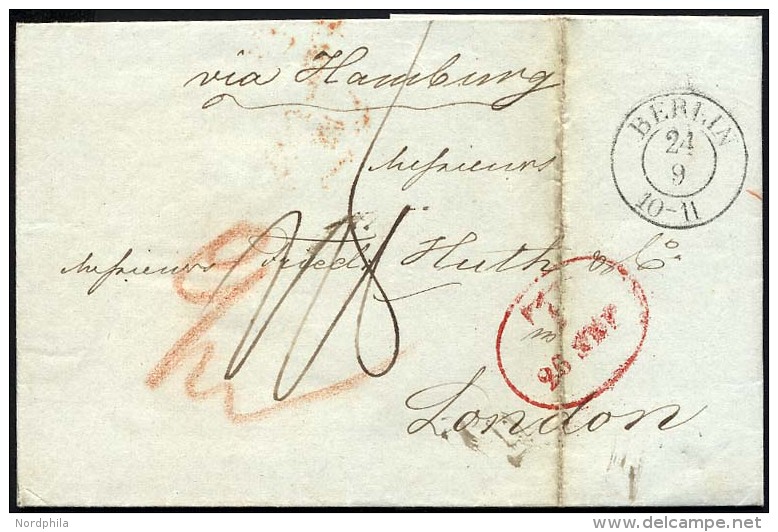 via Hamburg
BERLIN
24
9
10-11
Messieurs
Messieurs Friedr Huth & Co.
in
26 SEP
London
Nordphila
delcampe.net